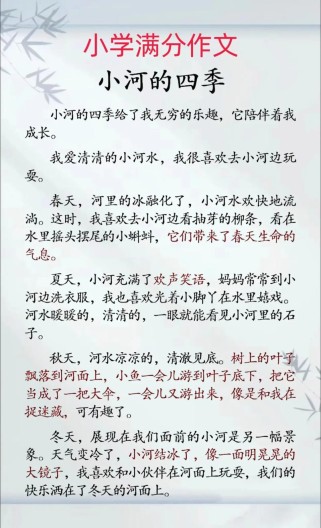 小学满分作文
小河的四季
小河的四季给了我无穷的乐趣，它陪伴着我
成长。
我爱清清的小河水，我很喜欢去小河边玩
耍。
春天，河里的冰融化了，小河水欢快地流
淌。这时，我喜欢去小河边看抽芽的柳条，看在
水里摇头摆尾的小蝌蚪，它们带来了春天生命的
气息。
夏天，小河充满了欢声笑语，妈妈常常到小
河边洗衣服，我也喜欢光着小脚丫在水里嬉戏。
河水暖暖的，清清的，一眼就能看见小河里的石
子。
秋天，河水凉凉的，清澈见底。树上的叶子
飘落到河面上，小鱼一会儿游到叶子底下，把它
当成了一把大伞，一会儿又游出来，像是和我在
捉迷藏，可有趣了。
冬天，展现在我们面前的小河是另一幅景
象。天气变冷了，小河结冰了，像一面明晃晃的
大镜子，我喜欢和小伙伴在河面上玩耍，我们的
快乐洒在了冬天的河面上。